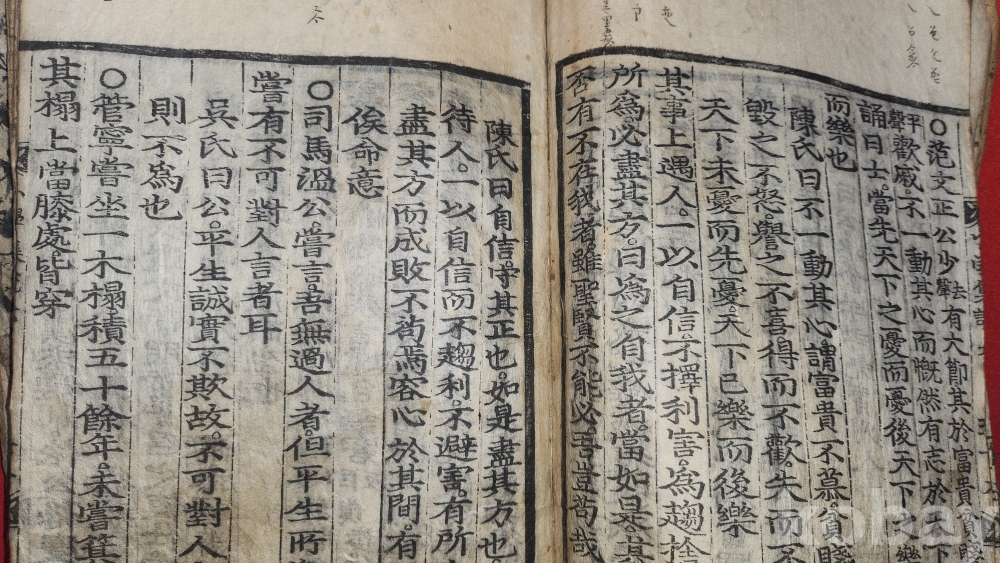 ○范文正公少去聲有大節其於富貴貧賤
平聲歡戚不一動其心而慨然有志於天下
誦曰士當先天下之憂而憂後天下之樂
而樂也
陳氏曰不一動其心謂富貴不慕貧賤
毁之不怒譽之不喜得而不歡失而不
天下未憂而先憂天下已樂而後樂
其事上遇人一以自信不擇利害為趨捨
所為必盡其方曰為之自我者當如是其
否有不在我者雖聖賢不能必吾豈苟哉
陳氏曰自信守其正也如是盡其方也
待人一以自信而不趨利不避害有所
盡其方而成敗不苟焉容心於其間有
俟命意
○司馬溫公嘗言吾無過人者但平生所
嘗有不可對人言者耳
吳氏曰公平生誠實不欺故不可對人
則不為也
○管寧嘗坐一木榻積五十餘年未嘗箕
其榻上當膝處皆穿